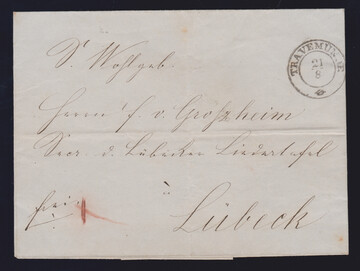 Sr Wohlgeb.
TRAVEMÜNDE
21
8
Herrn F. v. Großheim
Secr. d. Lübecker Liedertafel
frei
Lübeck